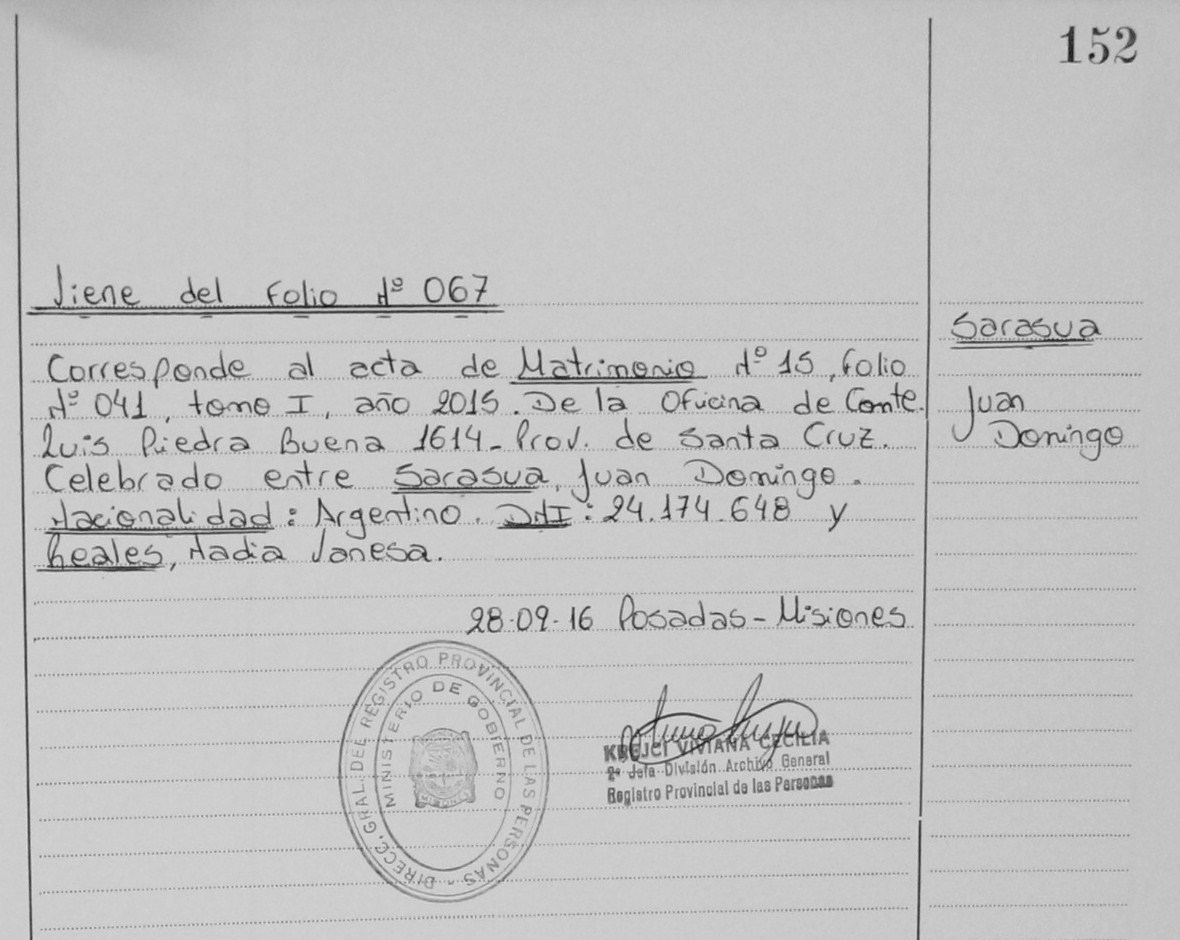 152
Viene del Folio Nº 067
Corresponde al acta de Matrimonio Nº 15, folio
Nº 041, tomo I, año 2015. De la Oficina de Comte.
Luis Piedra Buena 1614- Prov. de Santa Cruz.
Celebrado entre Sarasua, Juan Domingo.
Nacionalidad: Argentino. DNI: 24.174.648 y
Reales, Nadia Vanesa.
28-09-16 Posadas- Misiones
Sarasua
Juan
Domingo
DIRECC. GRAL. DEL REGISTRO PROVINCIAL DE LAS PERSONAS -
MINISTERIO DE GOBIERNO
KREJCI VIVIANA CECILIA
2º Jefa División Archivo General
Registro Provincial de las Personas